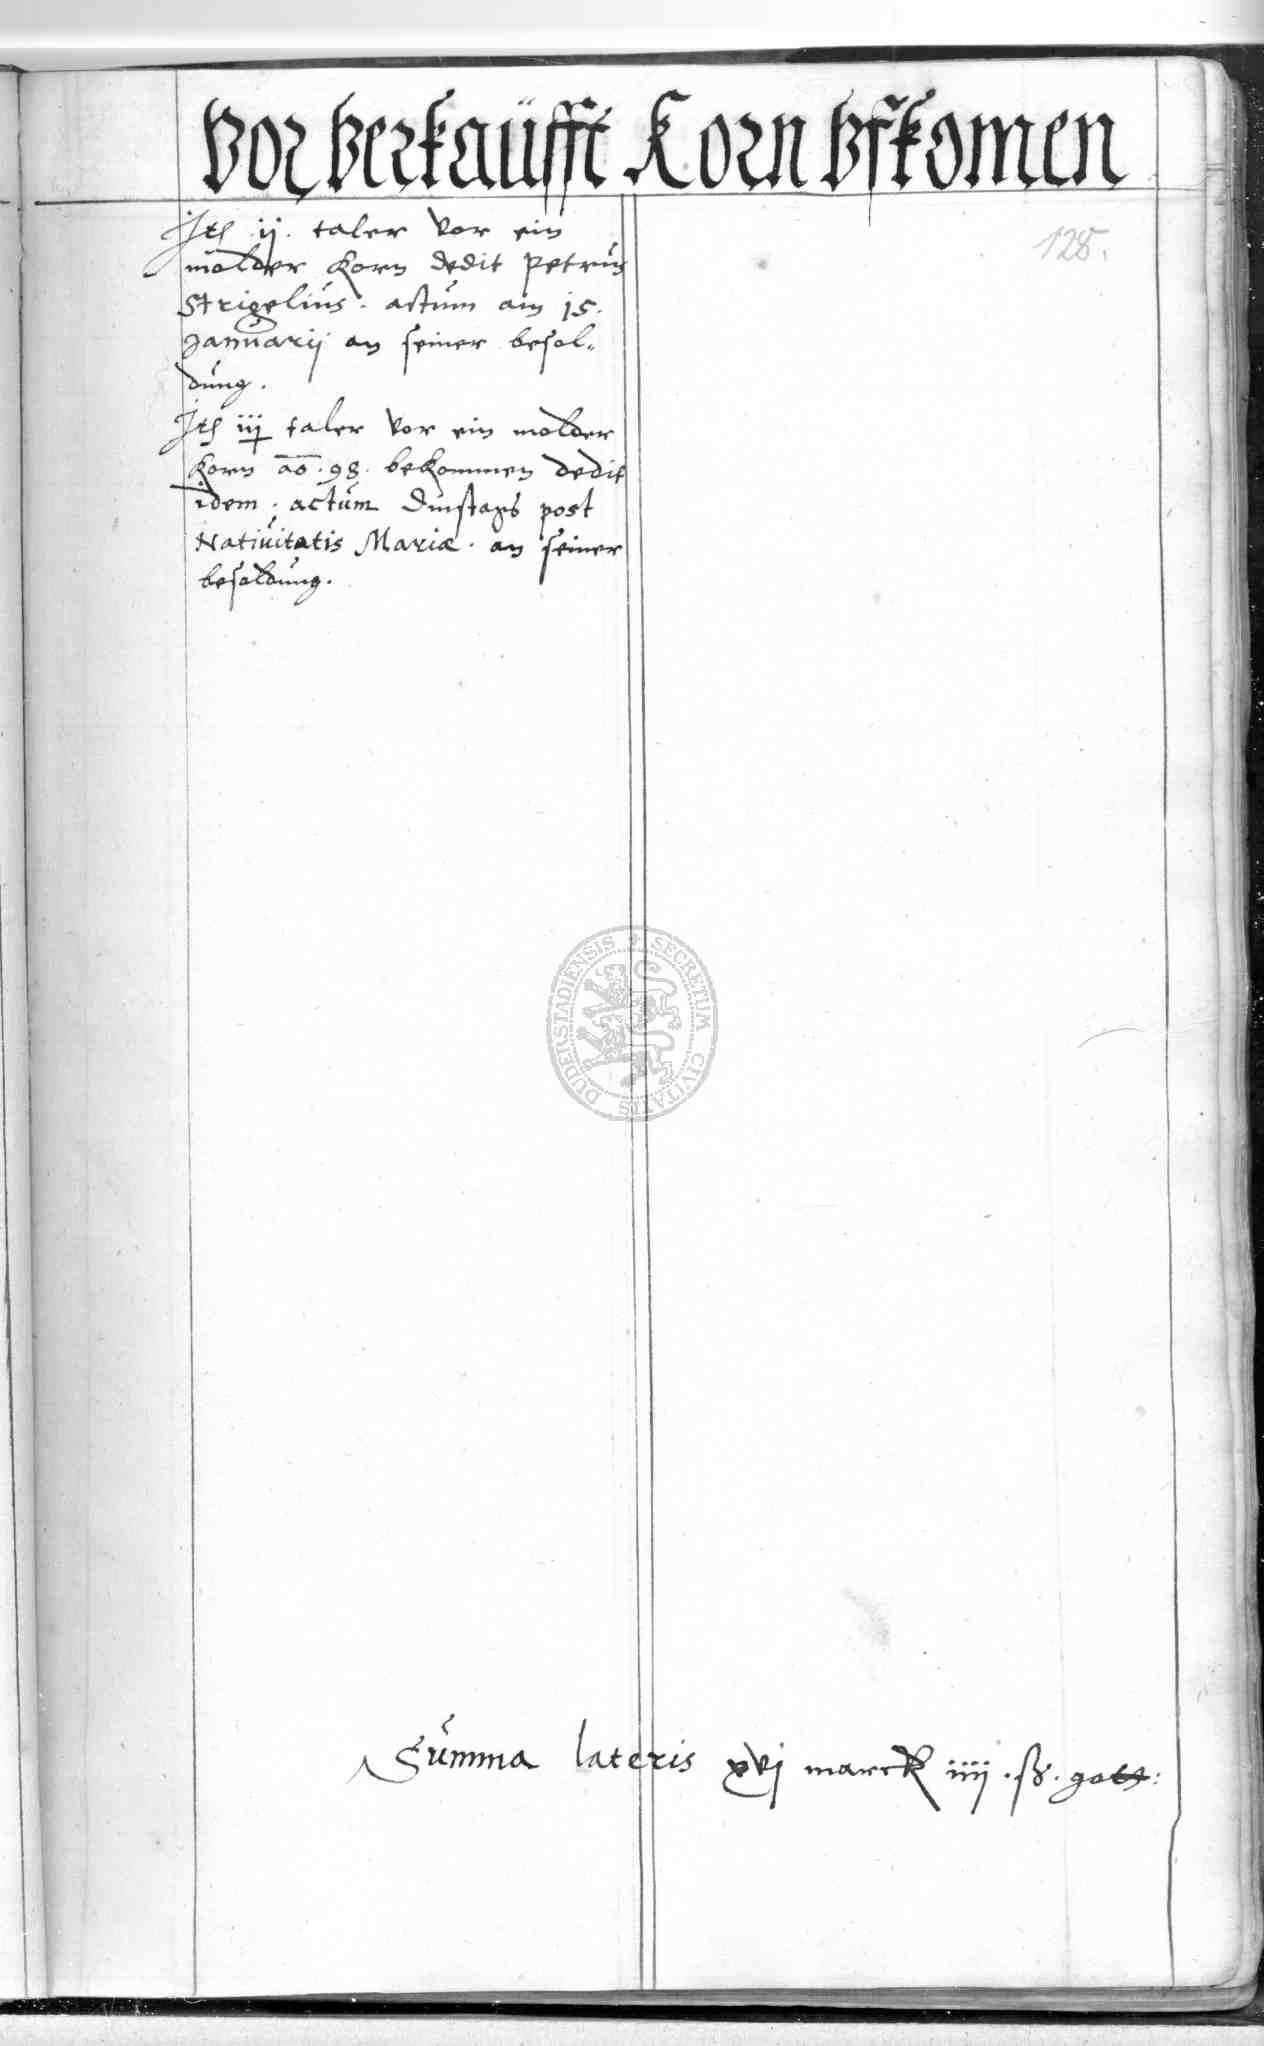 Vor Verkaüfft Korn Vfkomen
128.
Jtē ij. taler vor ein
molder korn dedit Petrus
Strigelius. actum am 15.
Januarij an seiner besol-
dung.
Jtē iij taler vor ein molder
korn ao. 98. bekommen dedit
idem. actum Dinstags post
Natiuitatis Mariæ. an seiner
besoldung.
DUDERSTADIENSIS SECRETUM CIVITATIS
Summa lateris xvj marck iiij. ß. gott: